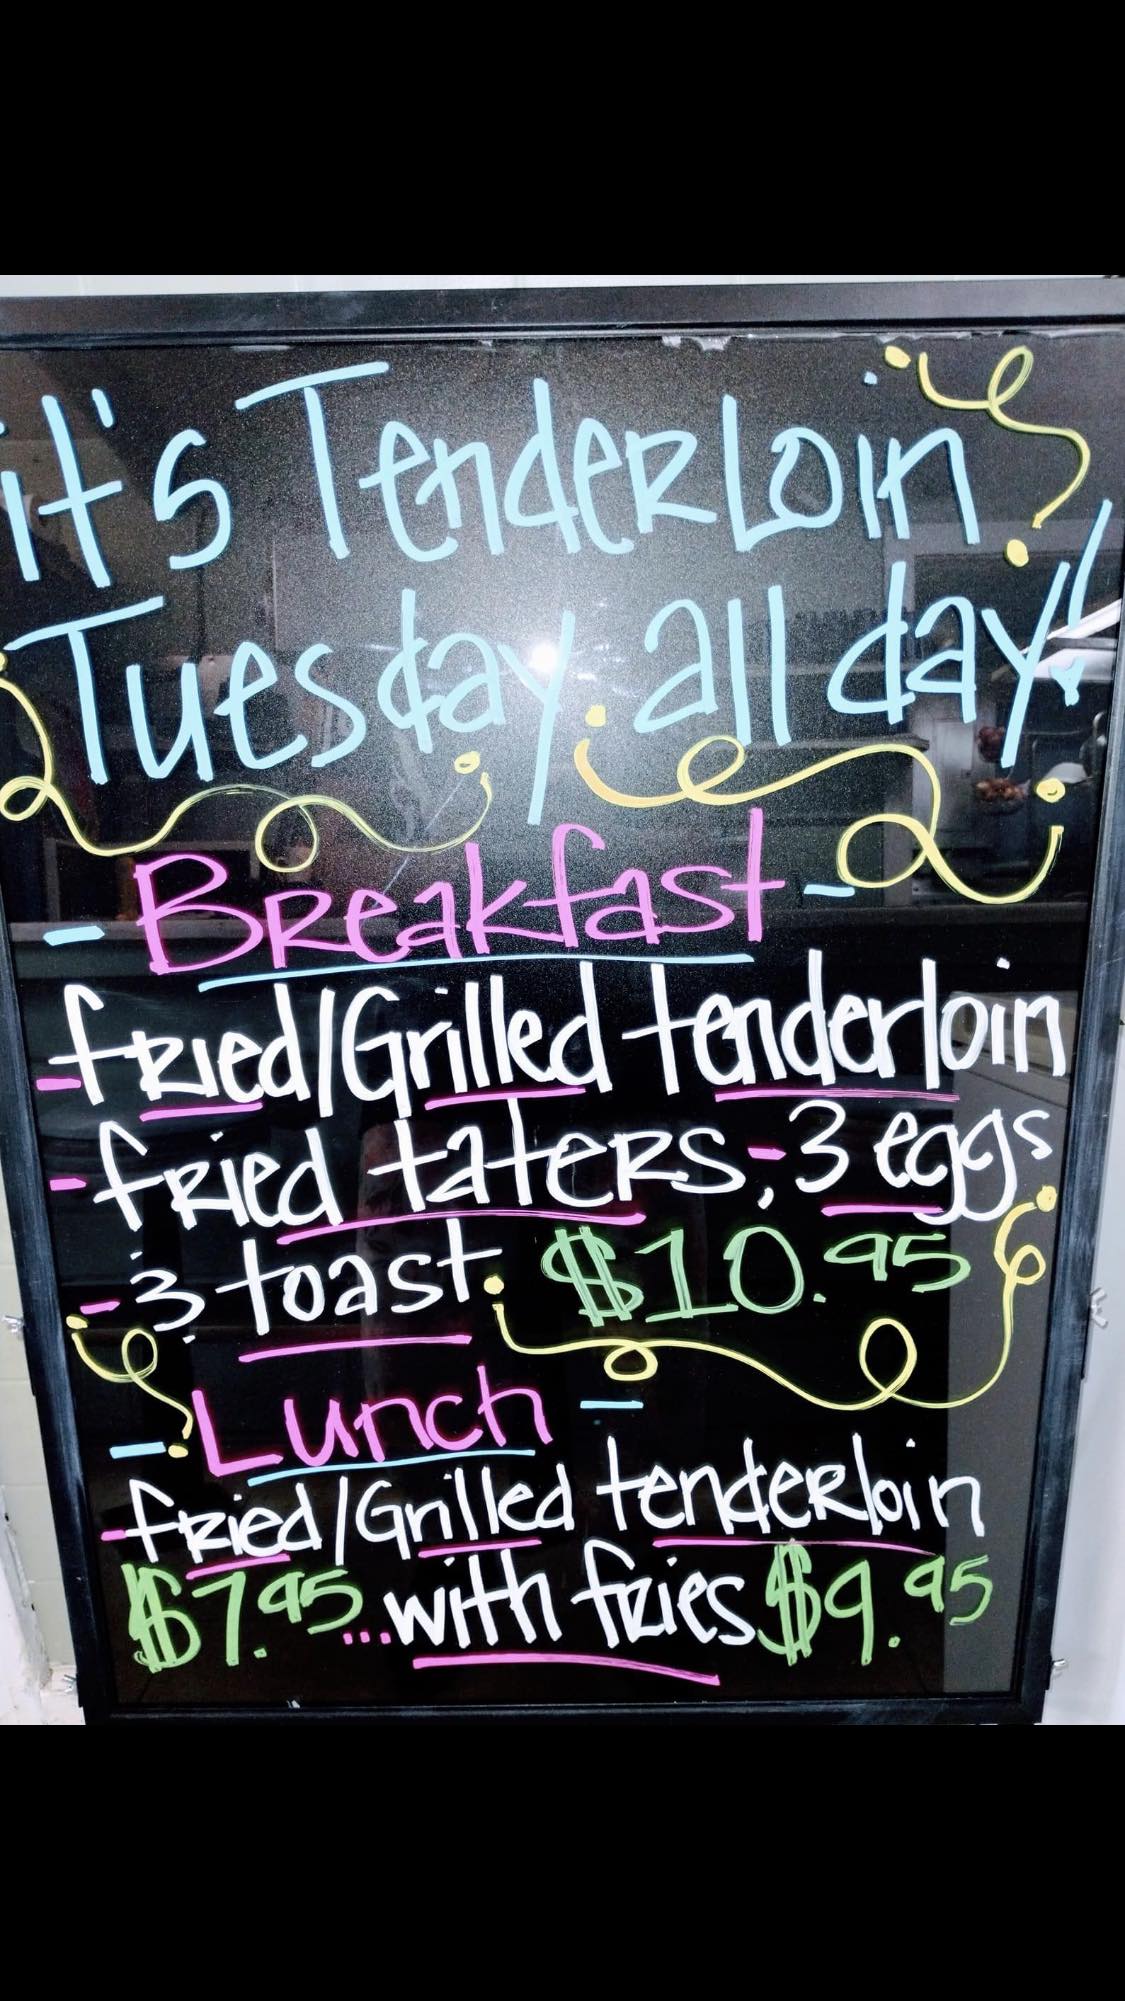 it's Tenderloin
Tuesday all day!
- Breakfast -
- fried/Grilled tenderloin
- fried taters, - 3 eggs
- 3 toast $10.95
- Lunch -
- fried/Grilled tenderloin
$7.95...with fries $9.95